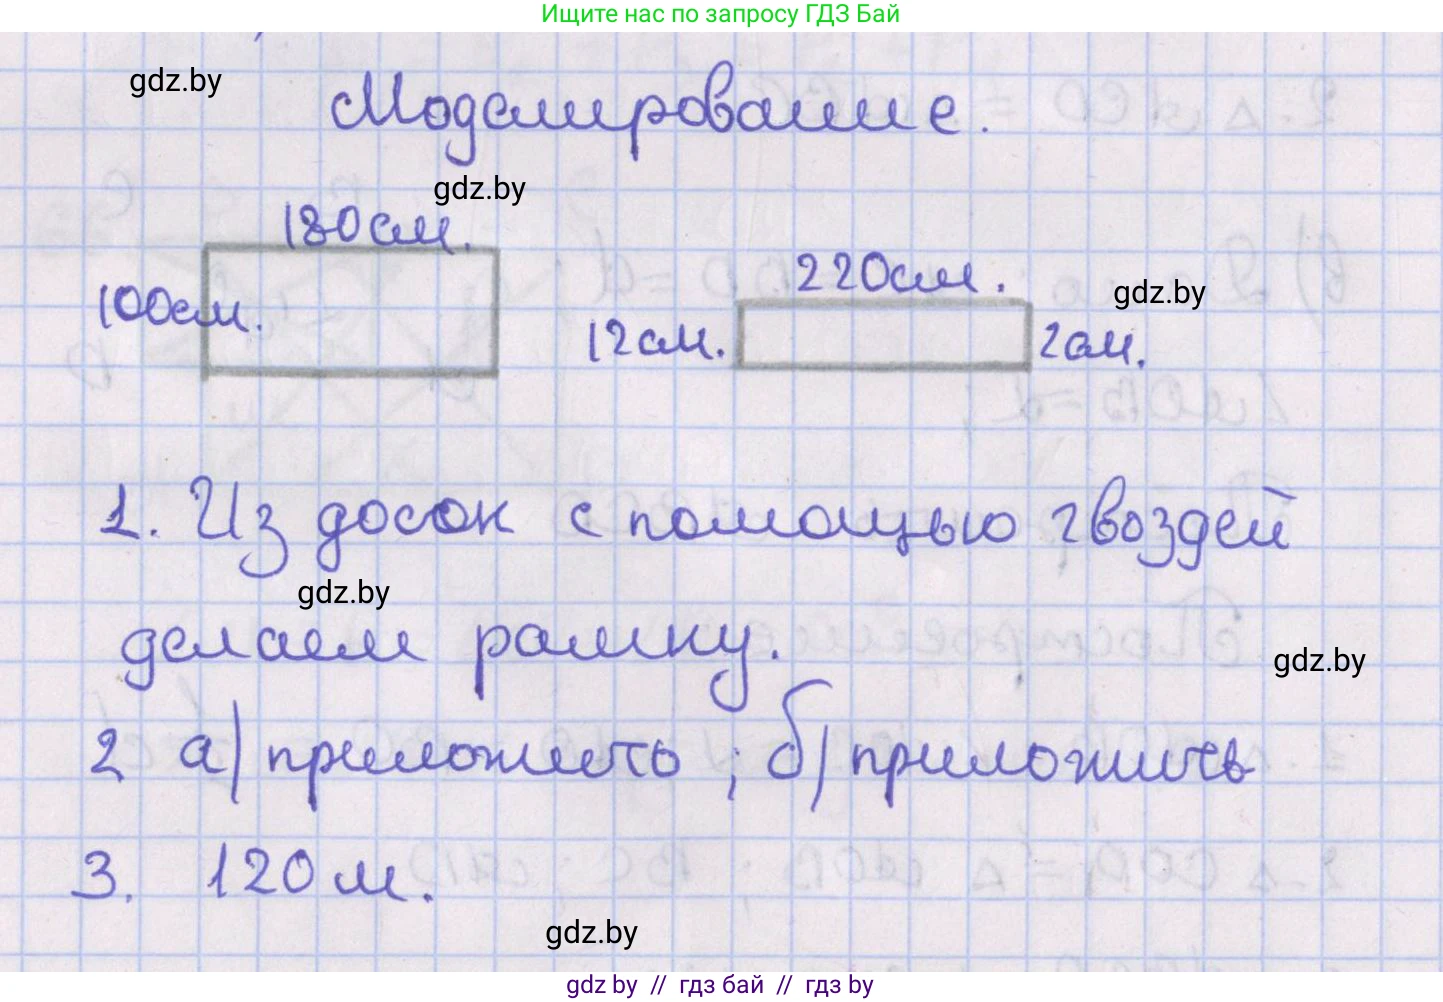 Ищите нас по запросу ГДЗ Бай
gdz.by
Моделирование.
gdz.by
180см.
100см.
220см.
gdz.by
12см.
2см.
1. Из досок с помощью гвоздей
gdz.by
делаем рамку.
gdz.by
2 а) приложить ; б) приложить
3. 120 м.
gdz.by
gdz.by // гдз бай // гдз by